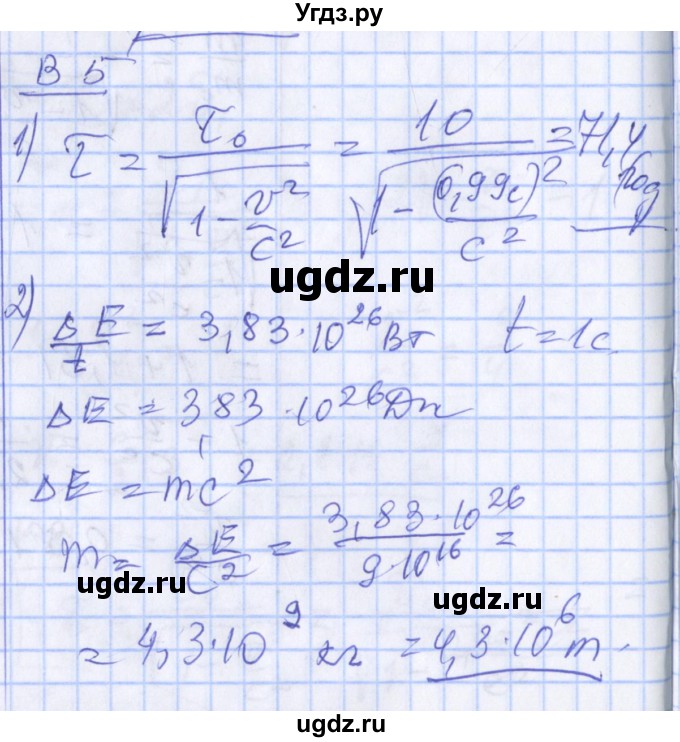 Угдз.ру
В 5
1) τ = τ₀ / √(1 - v²/c²) = 10 / √(1 - (0,99c)²/c²) = 71,4 год
ugdz.ru
2) ΔE/t = 3,83·10²⁶ Вт t = 1с
ΔE = 3,83·10²⁶ Дж
ΔE = mc²
m = ΔE/c² = 3,83·10²⁶ / 9·10¹⁶ =
ugdz.ru ugdz.ru
= 4,3·10⁹ кг = 4,3·10⁶ т.
ugdz.ru